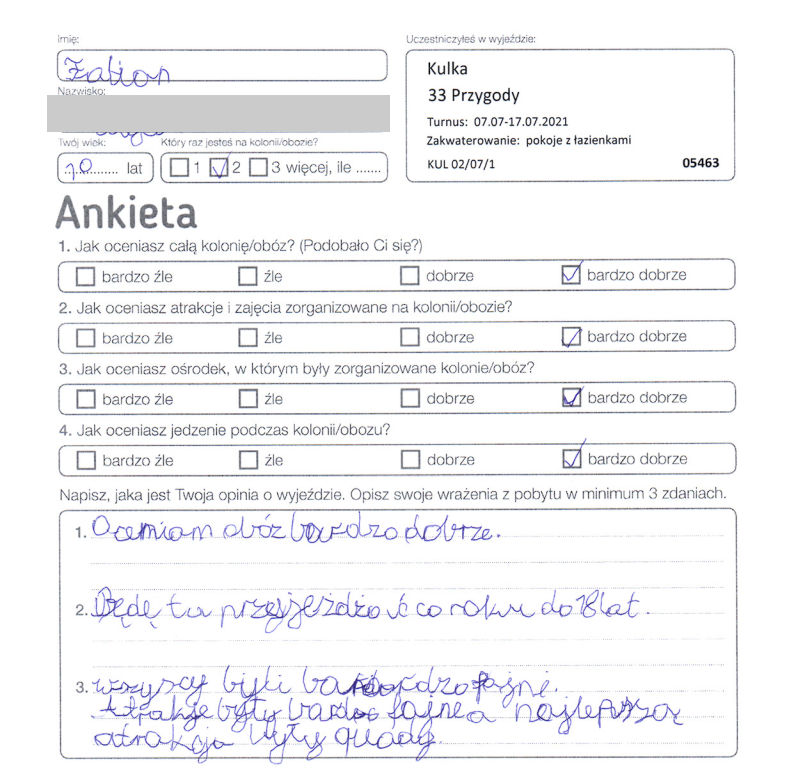 Imię:
Fabian
Uczestniczyłeś w wyjeździe:
Kulka
33 Przygody
Turnus: 07.07-17.07.2021
Zakwaterowanie: pokoje z łazienkami
KUL 02/07/1 05463
Nazwisko:
Twój wiek: Który raz jesteś na kolonii/obozie?
10 lat 1 2 3 więcej, ile .......
Ankieta
1. Jak oceniasz całą kolonię/obóz? (Podobało Ci się?)
bardzo źle źle dobrze bardzo dobrze
2. Jak oceniasz atrakcje i zajęcia zorganizowane na kolonii/obozie?
bardzo źle źle dobrze bardzo dobrze
3. Jak oceniasz ośrodek, w którym były zorganizowane kolonie/obóz?
bardzo źle źle dobrze bardzo dobrze
4. Jak oceniasz jedzenie podczas kolonii/obozu?
bardzo źle źle dobrze bardzo dobrze
Napisz, jaka jest Twoja opinia o wyjeździe. Opisz swoje wrażenia z pobytu w minimum 3 zdaniach.
1. Oceniam obóz bardzo dobrze.
2. Będę tu przyjeżdżać co roku do 18 lat.
3. wszyscy byli bardzo fajni.
Atrakcje były bardzo fajne a najlepszą
atrakcją były quady.